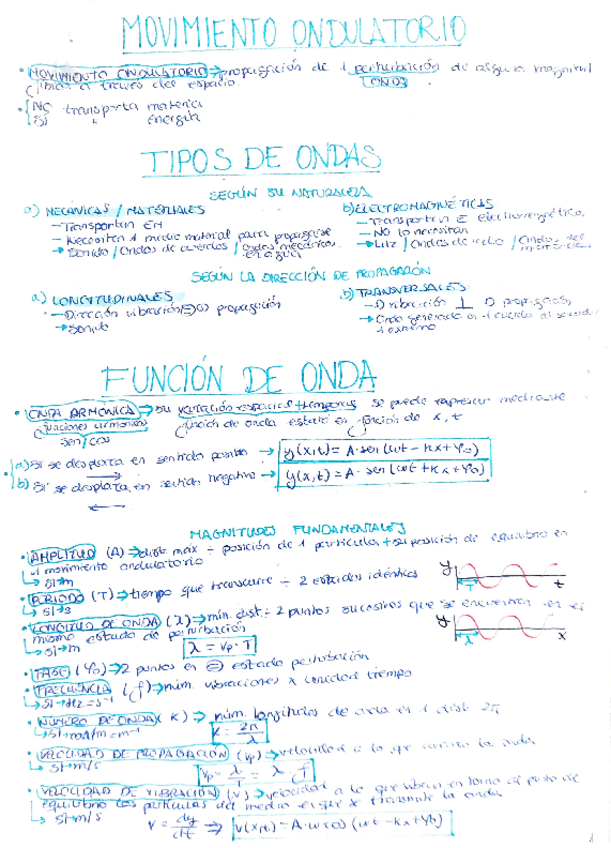 MOVIMIENTO ONDULATORIO
• MOVIMIENTO ONDULATORIO → propagación de 1 perturbación de alguna magnitud
física a través del espacio. ONDA
• NO transporta materia
SÍ " energía
TIPOS DE ONDAS
SEGÚN SU NATURALEZA
a) MECÁNICAS / MATERIALES
- Transportan EM
- Necesitan 1 medio material para propagarse
→ Sonido / Ondas de cuerdas / Ondas mecánicas en agua
b) ELECTROMAGNÉTICAS
- Transportan E electromagnética.
- NO lo necesitan
→ Luz / Ondas de radio / Ondas del
SEGÚN LA DIRECCIÓN DE PROPAGACIÓN
a) LONGITUDINALES
- Dirección vibración = propagación
→ Sonido
b) TRANSVERSALES
- D vibración ⊥ D propagación
→ Onda generada en 1 cuerda al sacudir
1 extremo
FUNCIÓN DE ONDA
• ONDA ARMÓNICA → su variación espacial + temporal se puede representar mediante
funciones armónicas función de onda estado en función de x, t
sen/cos
a) Si se desplaza en sentido positivo → y(x,t) = A · sen (ωt - kx + φ₀)
b) Si se desplaza en sentido negativo → y(x,t) = A · sen (ωt + kx + φ₀)
MAGNITUDES FUNDAMENTALES
• AMPLITUD (A) → dist. max ÷ posición de 1 partícula + su posición de equilibrio en
el movimiento ondulatorio
↳ SI → m
• PERIODO (T) → tiempo que transcurre ÷ 2 estados idénticos
↳ SI → s
y T t
• LONGITUD DE ONDA (λ) → mín. dist ÷ 2 puntos sucesivos que se encuentran en el
mismo estado de perturbación
↳ SI → m λ = Vp · T
y λ x
• FASE (φ₀) → 2 puntos en = estado perturbación
• FRECUENCIA (f) → núm. vibraciones x unidad tiempo
↳ SI → Hz = s⁻¹
• NÚMERO DE ONDA (K) → núm. longitudes de onda en 1 dist 2π
↳ SI → rad/m = m⁻¹ K = 2π/λ
• VELOCIDAD DE PROPAGACIÓN (Vp) → velocidad a la que avanza la onda
↳ SI → m/s Vp = λ/T = λ · f
• VELOCIDAD DE VIBRACIÓN (V) → velocidad a la que vibran en torno al punto de
equilibrio las partículas del medio en que se transmite la onda
↳ SI → m/s V = dy/dt → V(x,t) = A · ω cos (ωt - kx + φ₀)